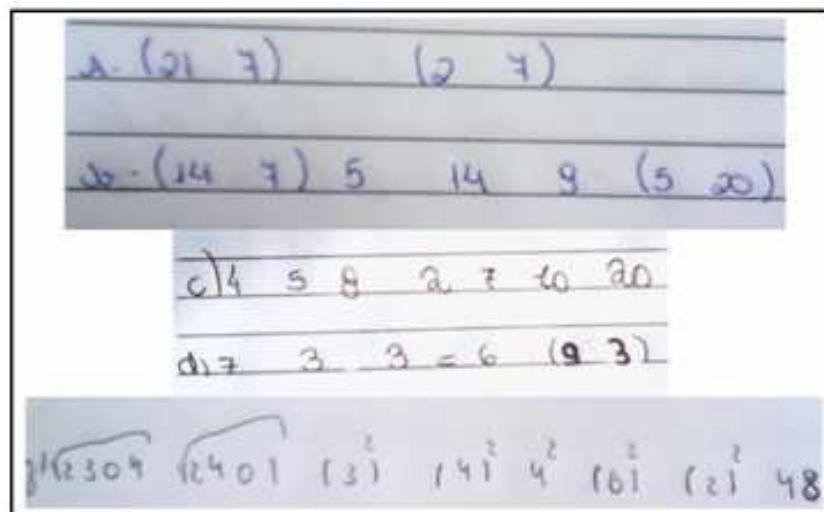 a- (21 7) (2 7)
b- (14 7) 5 14 9 (5 20)
c) 4 5 8 2 7 10 20
d) 7 3 3 = 6 (9 3)
√2304 √2401 (3)² (4)² 4² (6)² (2)² 48